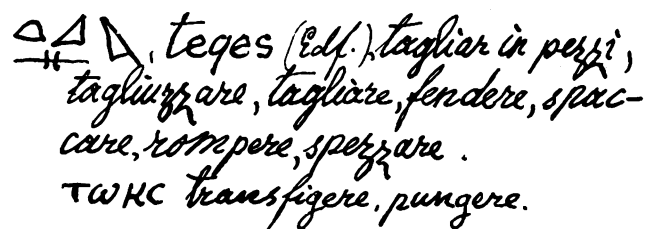 , teqes (Edf.), tagliar in pezzi,
tagliuzzare, tagliare, fendere, spac-
care, rompere, spezzare.
ⲧⲱⲕⲥ transfigere, pungere.